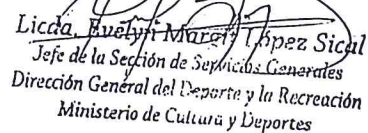 Licda. Evelyn Marcis López Sical
Jefe de la Sección de Servicios Generales
Dirección General del Deporte y la Recreación
Ministerio de Cultura y Deportes